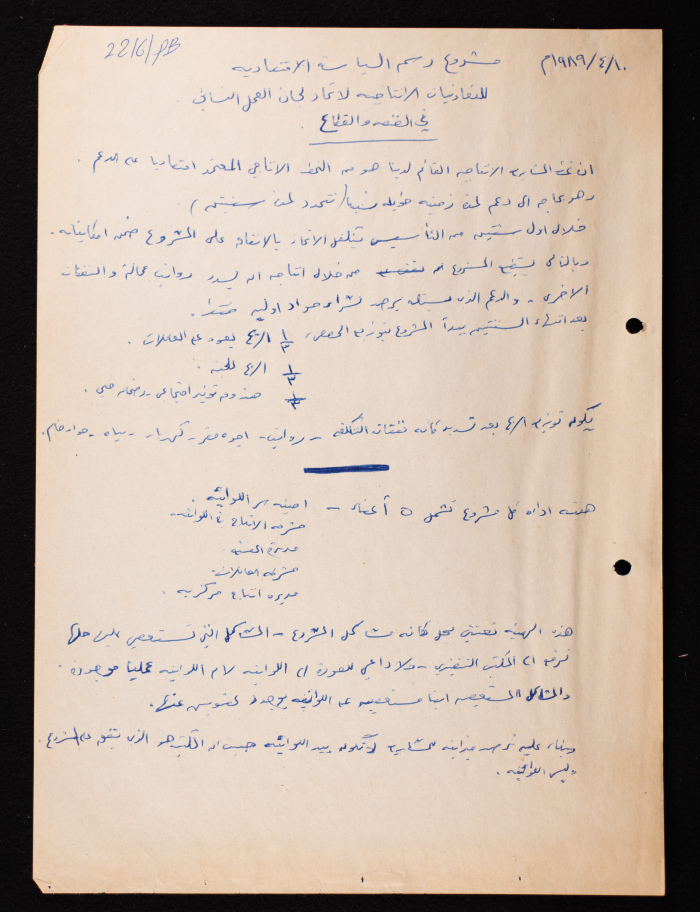 226/PB
١٩٨٩/٤/١٠م
مشروع رسم السياسة الاقتصادية
للتعاونيات الانتاجيه لاتحاد لجان العمل النسائي
في الضفه والقطاع
ان نمط المشاريع الانتاجيه القائم لدينا هو من النمط الانتاجي المعتمد اقتصاديا على الدعم .
وهو بحاجه الى دعم لمده زمنيه طويله نسبيا ( تتحدد لمدة سنتين )
خلال اول سنتين من التأسيس يتكفل الاتحاد بالانفاق على المشروع ضمن امكانياته .
وبالتالي يستطيع المشروع من خلال انتاجه ان يسدد رواتب عمالة والنفقات
الاخرى - والدعم الذي يرصد لشراء مواد اوليه فقط .
بعد انتهاء السنتين يبدأ المشروع بتوزيع الحصص، ١/٣ الارباح يعود على العاملات .
١/٣ الارباح للجنه .
١/٣ صندوق توفير اجتماعي - وضمان صحي .
يكون توزيع الارباح بعد تسديد كافة نفقات التكلفه - رواتب - اجرة مقر - كهرباء - مياه - مواد خام .
هيئه اداره كل مشروع تشمل ٥ أعضاء - امينه سر اللوائيه .
مشرفه الانتاج في اللوائيه
مديرة
مشرفه العاملات
مديره انتاج مركزيه .
هذه الهيئه تعتني بحل كافه مشاكل المشروع - المشاكل التي تستعصي عليها حلها
ترفع الى المكتب التنفيذي - ولا داعي للعودة الى اللوائيه لان اللوائيه عمليا موجودة .
والمشاكل المستعصيه ايضا مستعصيه على اللوائيه بوجود مندوبتين عنها .
وبناء عليه ترصد ميزانيه للمشاريع لا تكون بيد اللوائيه حيث ان المكتب هو الذي ينفق على المشروع .
وليس اللوائيه .